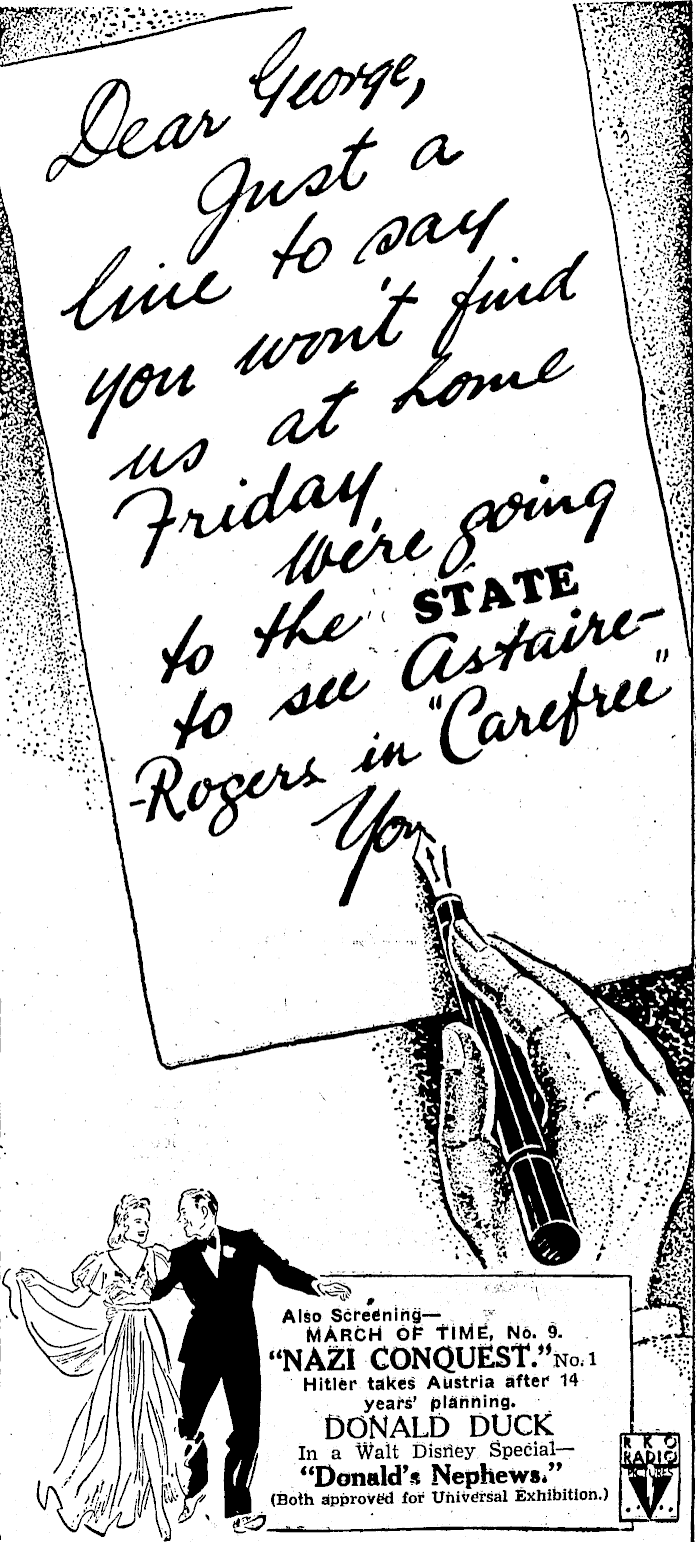 Dear George,
Just a
line to say
you won't find
us at home
Friday
We're going
to the STATE
to see Astaire-
-Rogers in "Carefree"
You
Also Screening—
MARCH OF TIME, No. 9.
"NAZI CONQUEST." No. 1
Hitler takes Austria after 14
years' planning.
DONALD DUCK
In a Walt Disney Special—
"Donald's Nephews."
(Both approved for Universal Exhibition.)
RKO
RADIO
PICTURES